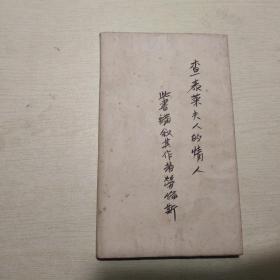 查泰莱夫人的情人
此书编叙其作者劳伦斯